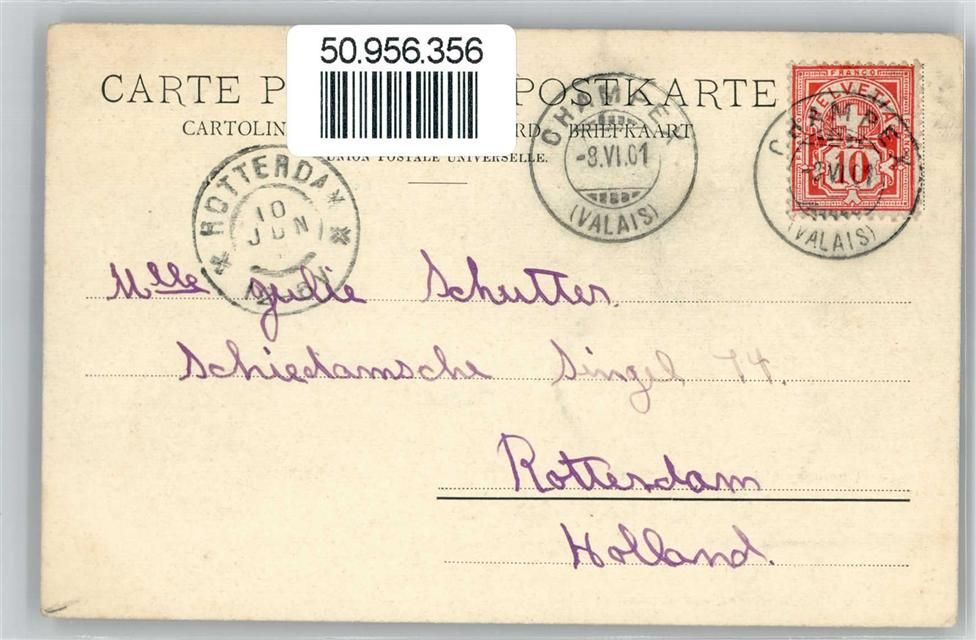 50.956.356
CARTE P POSTKARTE
CARTOLIN RD - BRIEFKAART
UNION POSTALE UNIVERSELLE.
CHAMPEX
-8.VI.01
(VALAIS)
FRANCO
HELVETIA
10
CHAMPEX
-8.VI.01
(VALAIS)
ROTTERDAM
10
JUN
Mlle Julie Schutter.
Schiedamsche Singel 74.
Rotterdam
Holland.